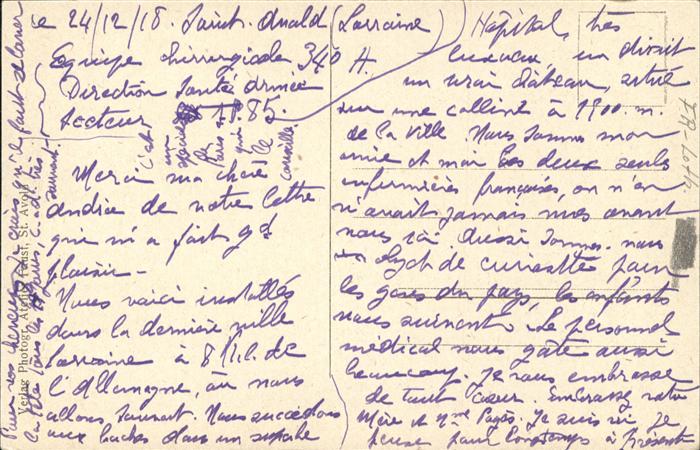 le 24/12/18. Saint-Avold (Lorraine)
Equipe chirurgicale 340 A.
Direction Santé Armée
Secteur 185.
c'est un
de Paris qui
le conseille
Merci ma chère
Andrée de votre lettre
qui m'a fait gd
plaisir -
Nous voici installés
dans la dernière ville
Lorraine à 8 Kil. de
l'Allemagne, où nous
allons souvent. Nous succédons
aux boches dans un superbe
Hôpital, très
luxueux, on dirait
un vrai château, situé
sur une colline à 1900. m.
de la ville. Nous sommes mon
amie et moi les deux seules
infirmières françaises, on n'en
n'avait jamais vues avant
nous ici. Aussi sommes-nous
objet de curiosité pour
les gens du pays, les enfants
nous suivent. Le personnel
médical nous gâte aussi
beaucoup. Je vous embrasse
de tout cœur. Embrassez votre
Mère et Mme Pagès. Je suis ici je
pense pour longtemps à présent
Pour vos cheveux je crois qu'il faut se laver
la tête tous les mois, c. à d. très
souvent.
Verlag Photogr. Atelier Faust, St. Avold